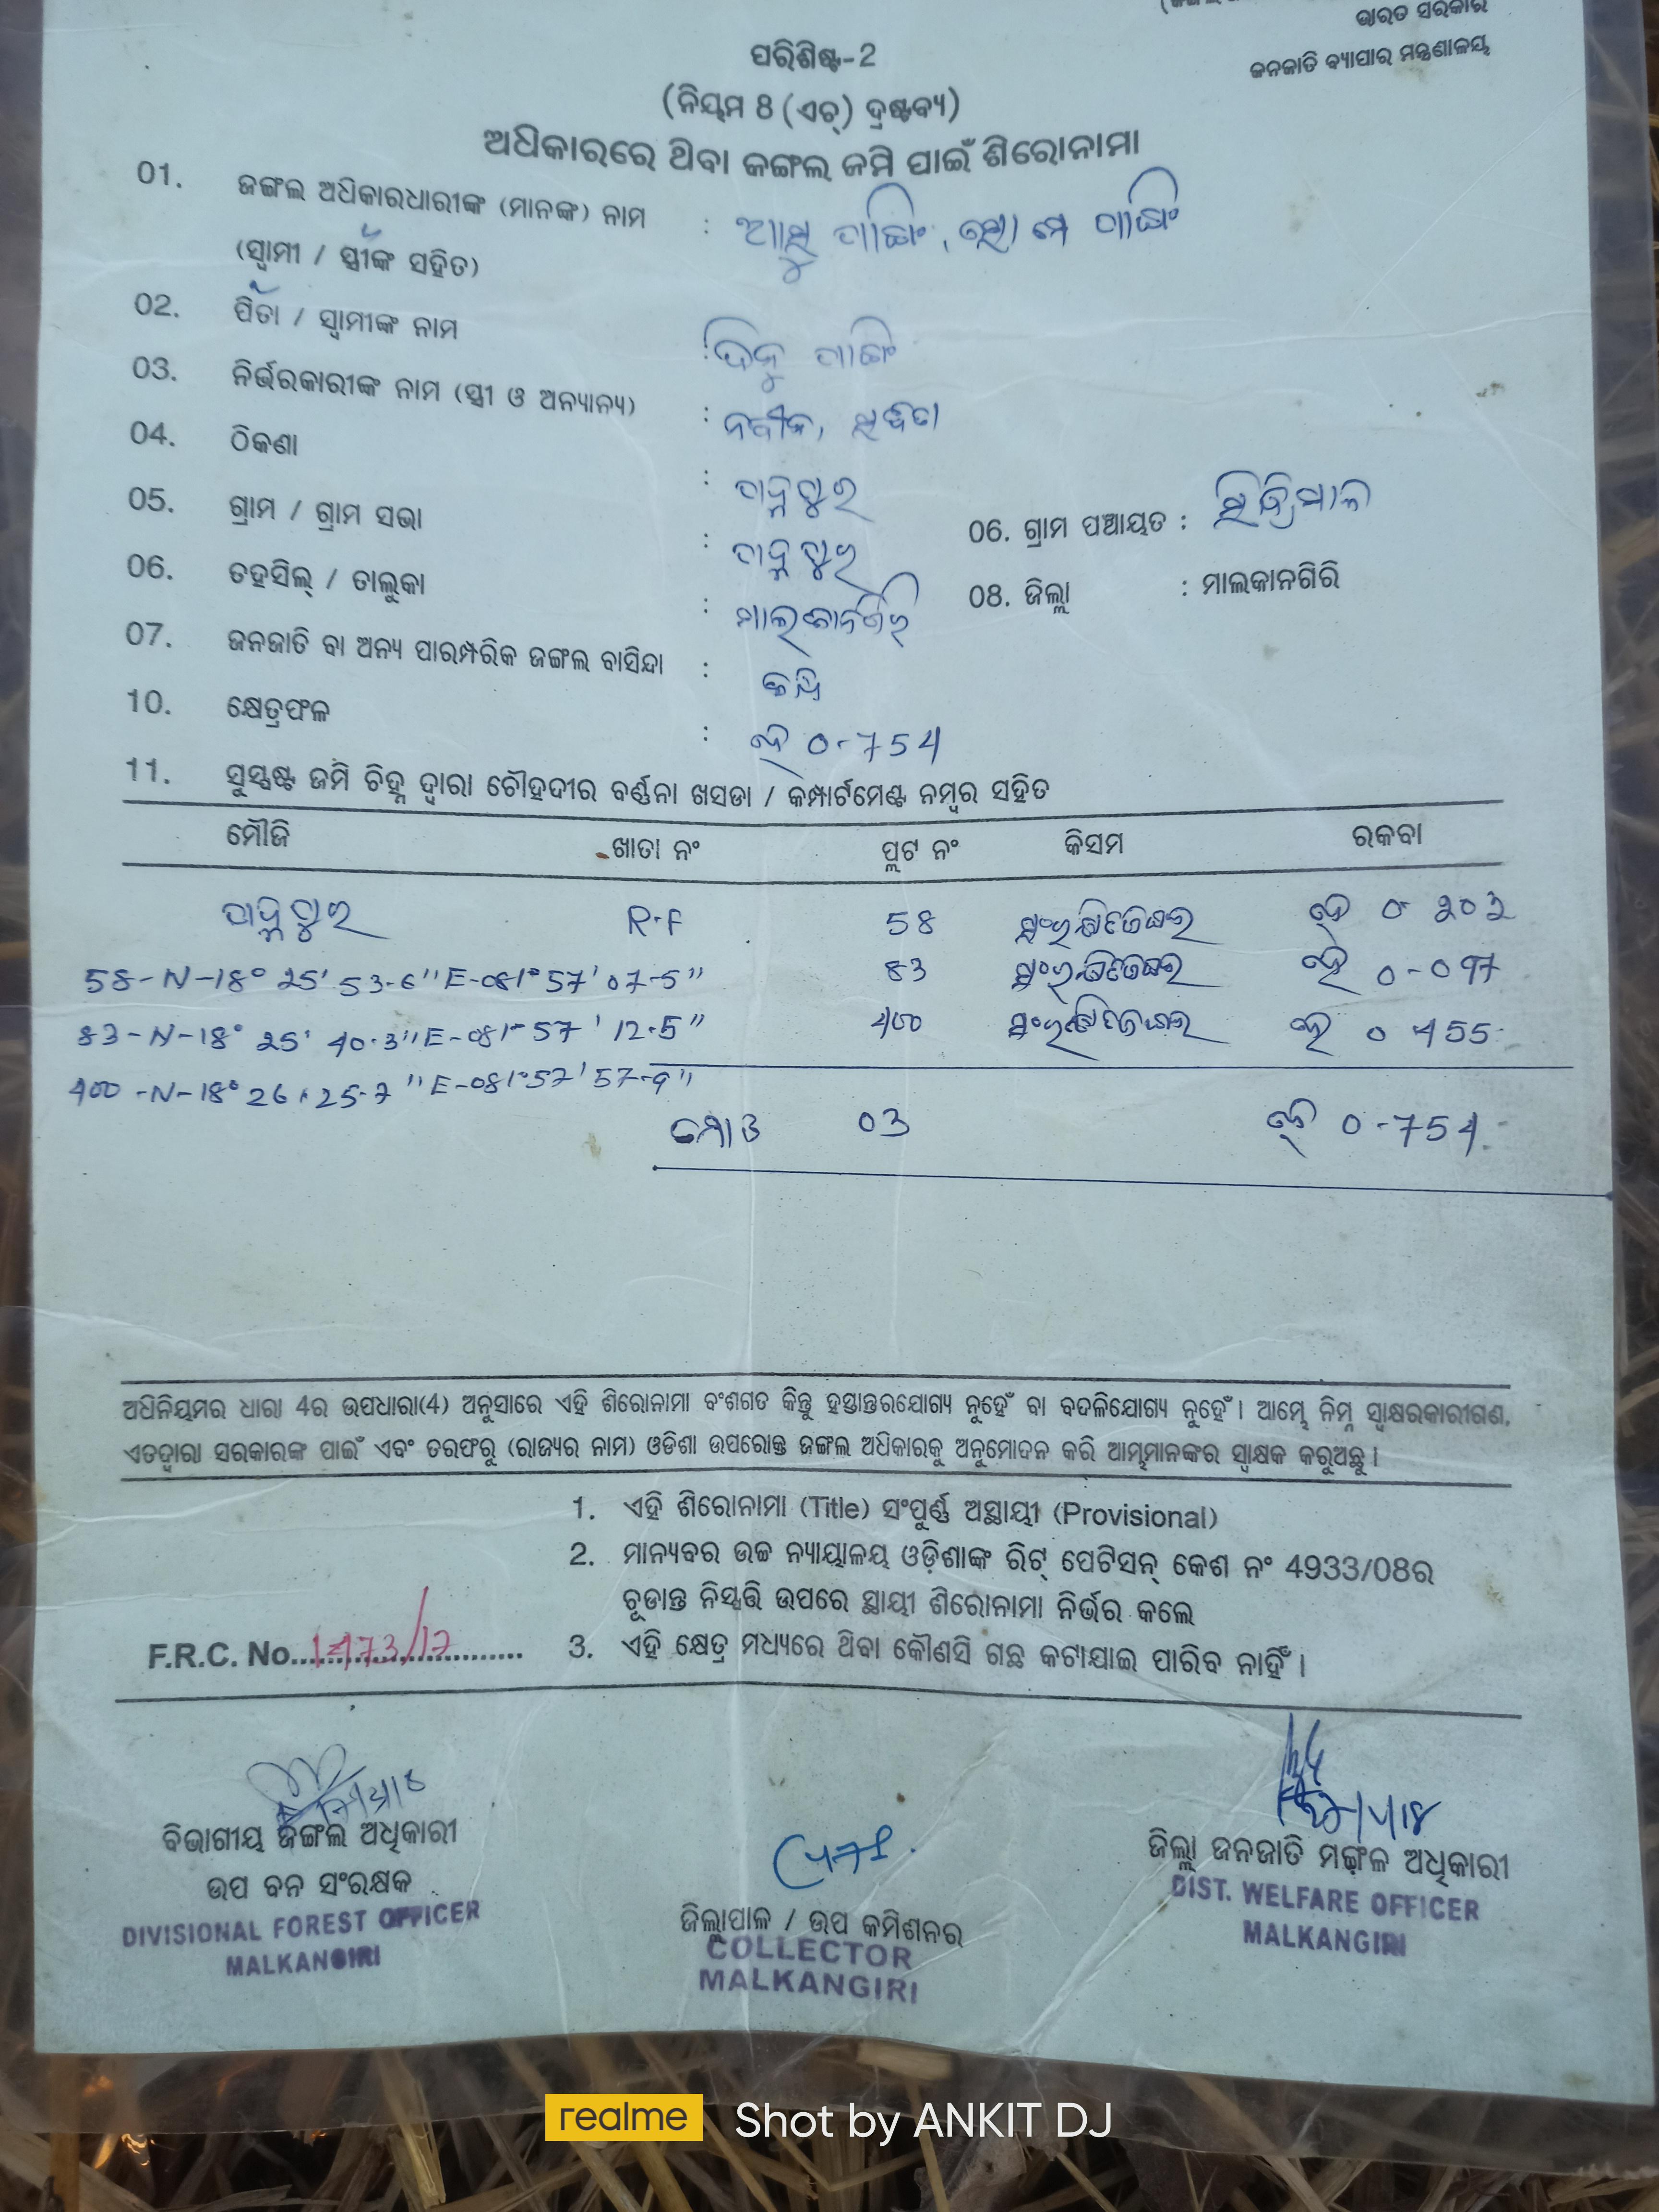 ଭାରତ ସରକାର
ଜନଜାତି ବ୍ୟାପାର ମନ୍ତ୍ରଣାଳୟ
ପରିଶିଷ୍ଟ-2
(ନିୟମ 8 (ଏଚ୍) ଦ୍ରଷ୍ଟବ୍ୟ)
ଅଧିକାରରେ ଥିବା ଜଙ୍ଗଲ ଜମି ପାଇଁ ଶିରୋନାମା
01. ଜଙ୍ଗଲ ଅଧିକାରଧାରୀଙ୍କ (ମାନଙ୍କ) ନାମ :
(ସ୍ୱାମୀ / ସ୍ତ୍ରୀଙ୍କ ସହିତ)
02. ପିତା / ସ୍ୱାମୀଙ୍କ ନାମ :
03. ନିର୍ଭରକାରୀଙ୍କ ନାମ (ସ୍ତ୍ରୀ ଓ ଅନ୍ୟାନ୍ୟ) :
04. ଠିକଣା :
05. ଗ୍ରାମ / ଗ୍ରାମ ସଭା : 06. ଗ୍ରାମ ପଞ୍ଚାୟତ :
06. ତହସିଲ୍ / ତାଲୁକା : ମାଲକାନଗିରି 08. ଜିଲ୍ଲା : ମାଲକାନଗିରି
07. ଜନଜାତି ବା ଅନ୍ୟ ପାରମ୍ପରିକ ଜଙ୍ଗଲ ବାସିନ୍ଦା :
10. କ୍ଷେତ୍ରଫଳ : ହେ 0-754
11. ସୁସ୍ପଷ୍ଟ ଜମି ଚିହ୍ନ ଦ୍ୱାରା ଚୌହଦୀର ବର୍ଣ୍ଣନା ଖସଡା / କମ୍ପାର୍ଟମେଣ୍ଟ ନମ୍ବର ସହିତ
ମୌଜି ଖାତା ନଂ ପ୍ଲଟ ନଂ କିସମ ରକବା
R.F 58 ହେ 0-202
58-N-18° 25' 53-6" E-081° 57' 07-5" 83 ହେ 0-097
83-N-18° 25' 40.3" E-081° 57' 12.5" 400 ହେ 0.455
400-N-18° 26' 25-7" E-081° 57' 57-9"
ମୋଟ 03 ହେ 0-754
ଅଧିନିୟମର ଧାରା 4ର ଉପଧାରା(4) ଅନୁସାରେ ଏହି ଶିରୋନାମା ବଂଶଗତ କିନ୍ତୁ ହସ୍ତାନ୍ତରଯୋଗ୍ୟ ନୁହେଁ ବା ବଦଳିଯୋଗ୍ୟ ନୁହେଁ। ଆମ୍ଭେ ନିମ୍ନ ସ୍ୱାକ୍ଷରକାରୀଗଣ,
ଏତଦ୍ୱାରା ସରକାରଙ୍କ ପାଇଁ ଏବଂ ତରଫରୁ (ରାଜ୍ୟର ନାମ) ଓଡିଶା ଉପରୋକ୍ତ ଜଙ୍ଗଲ ଅଧିକାରକୁ ଅନୁମୋଦନ କରି ଆମ୍ଭମାନଙ୍କର ସ୍ୱାକ୍ଷକ କରୁଅଛୁ।
1. ଏହି ଶିରୋନାମା (Title) ସଂପୂର୍ଣ୍ଣ ଅସ୍ଥାୟୀ (Provisional)
2. ମାନ୍ୟବର ଉଚ୍ଚ ନ୍ୟାୟାଳୟ ଓଡ଼ିଶାଙ୍କ ରିଟ୍ ପେଟିସନ୍ କେଶ ନଂ 4933/08ର
ଚୂଡାନ୍ତ ନିସ୍ପତ୍ତି ଉପରେ ସ୍ଥାୟୀ ଶିରୋନାମା ନିର୍ଭର କଲେ
F.R.C. No. 3. ଏହି କ୍ଷେତ୍ର ମଧ୍ୟରେ ଥିବା କୌଣସି ଗଛ କଟାଯାଇ ପାରିବ ନାହିଁ।
ବିଭାଗୀୟ ଜଙ୍ଗଲ ଅଧିକାରୀ
ଉପ ବନ ସଂରକ୍ଷକ
DIVISIONAL FOREST OFFICER
MALKANGIRI
ଜିଲ୍ଲାପାଳ / ଉପ କମିଶନର
COLLECTOR
MALKANGIRI
ଜିଲ୍ଲା ଜନଜାତି ମଙ୍ଗଳ ଅଧିକାରୀ
DIST. WELFARE OFFICER
MALKANGIRI
realme Shot by ANKIT DJ